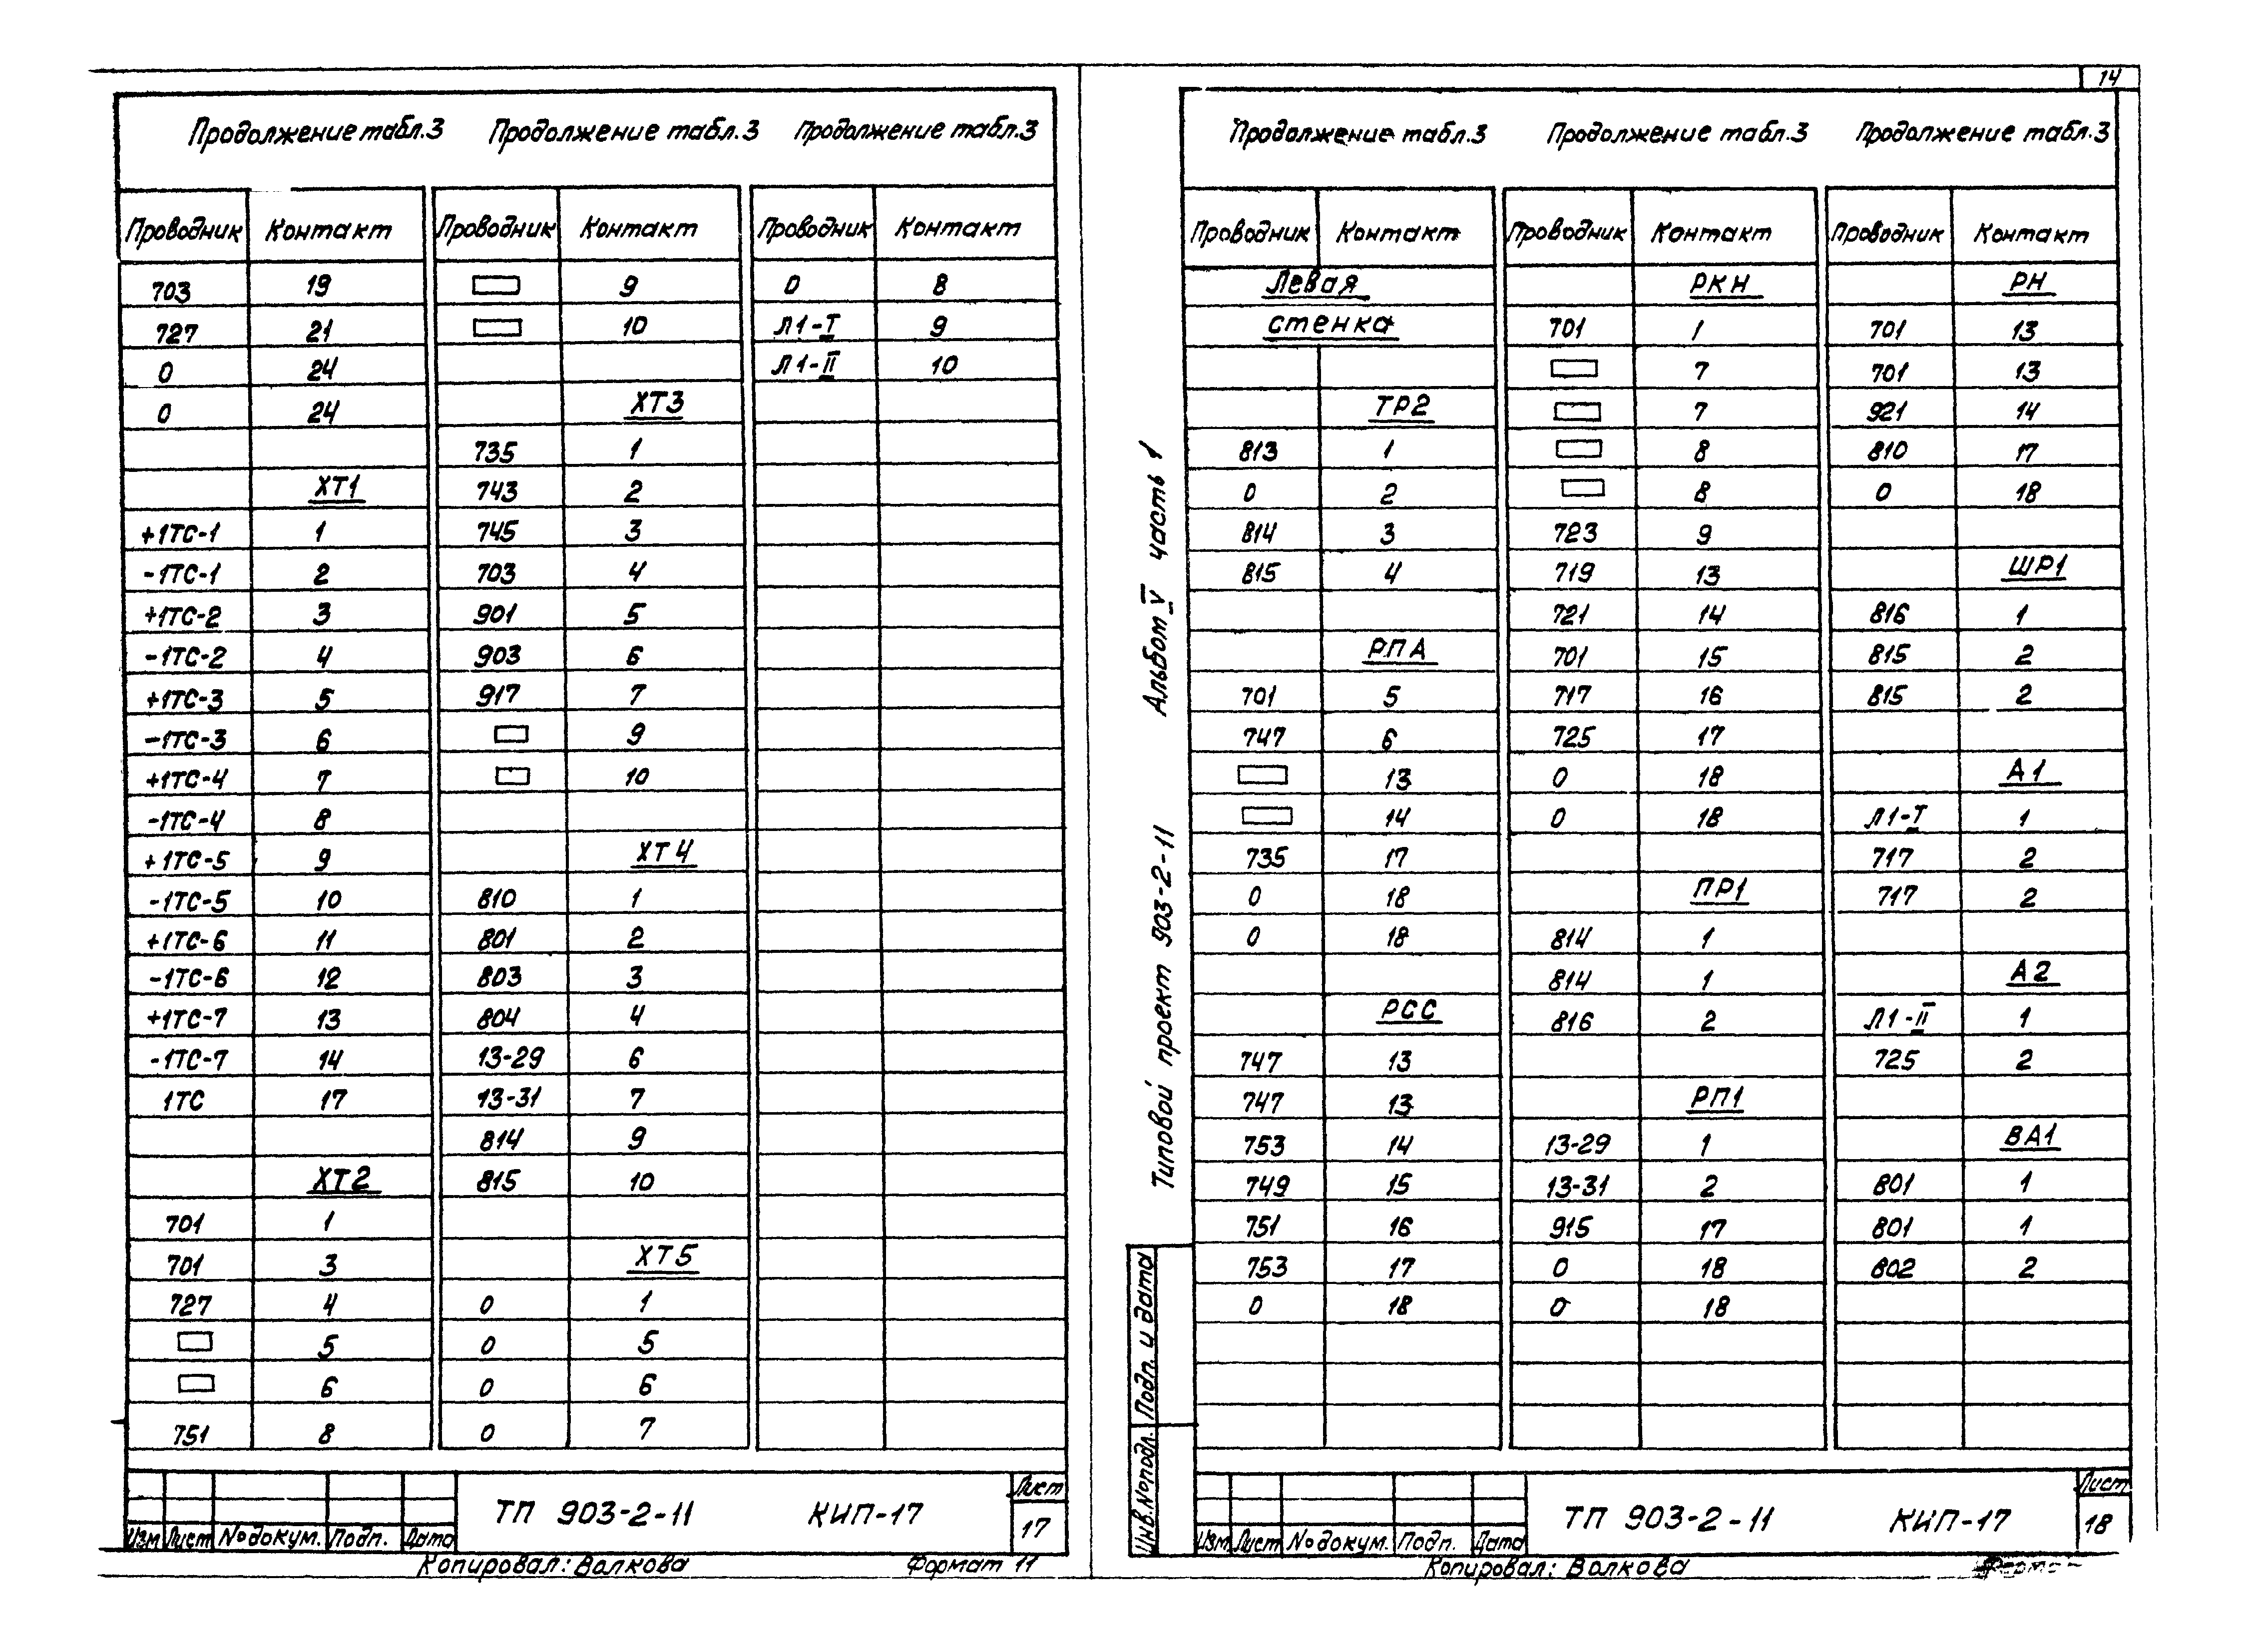 14
Продолжение табл.3 Продолжение табл.3 Продолжение табл.3
Проводник Контакт Проводник Контакт Проводник Контакт
703 19 9 0 8
727 21 10 Л1-I 9
0 24 Л1-II 10
0 24 ХТ3
735 1
ХТ1 743 2
+1ТС-1 1 745 3
-1ТС-1 2 703 4
+1ТС-2 3 901 5
-1ТС-2 4 903 6
+1ТС-3 5 917 7
-1ТС-3 6 9
+1ТС-4 7 10
-1ТС-4 8
+1ТС-5 9 ХТ4
-1ТС-5 10 810 1
+1ТС-6 11 801 2
-1ТС-6 12 803 3
+1ТС-7 13 804 4
-1ТС-7 14 13-29 6
1ТС 17 13-31 7
814 9
ХТ2 815 10
701 1
701 3 ХТ5
727 4 0 1
5 0 5
6 0 6
751 8 0 7
Изм Лист № докум. Подп. Дата
ТП 903-2-11 КИП-17
Лист
17
Копировал: Волкова Формат 11
Продолжение табл.3 Продолжение табл.3 Продолжение табл.3
Проводник Контакт Проводник Контакт Проводник Контакт
Левая РКН РН
стенка 701 1 701 13
7 701 13
ТР2 7 921 14
813 1 8 810 17
0 2 8 0 18
814 3 723 9
815 4 719 13 ШР1
721 14 816 1
РПА 701 15 815 2
701 5 717 16 815 2
747 6 725 17
13 0 18 А1
14 0 18 Л1-I 1
735 17 717 2
0 18 ПР1 717 2
0 18 814 1
814 1 А2
РСС 816 2 Л1-II 1
747 13 725 2
747 13 РП1
753 14 13-29 1 ВА1
749 15 13-31 2 801 1
751 16 915 17 801 1
753 17 0 18 802 2
0 18 0 18
Типовой проект 903-2-11 Альбом V часть 1
Инв.№подл. Подп. и дата
Изм Лист № докум. Подп. Дата
ТП 903-2-11 КИП-17
Лист
18
Копировал: Волкова